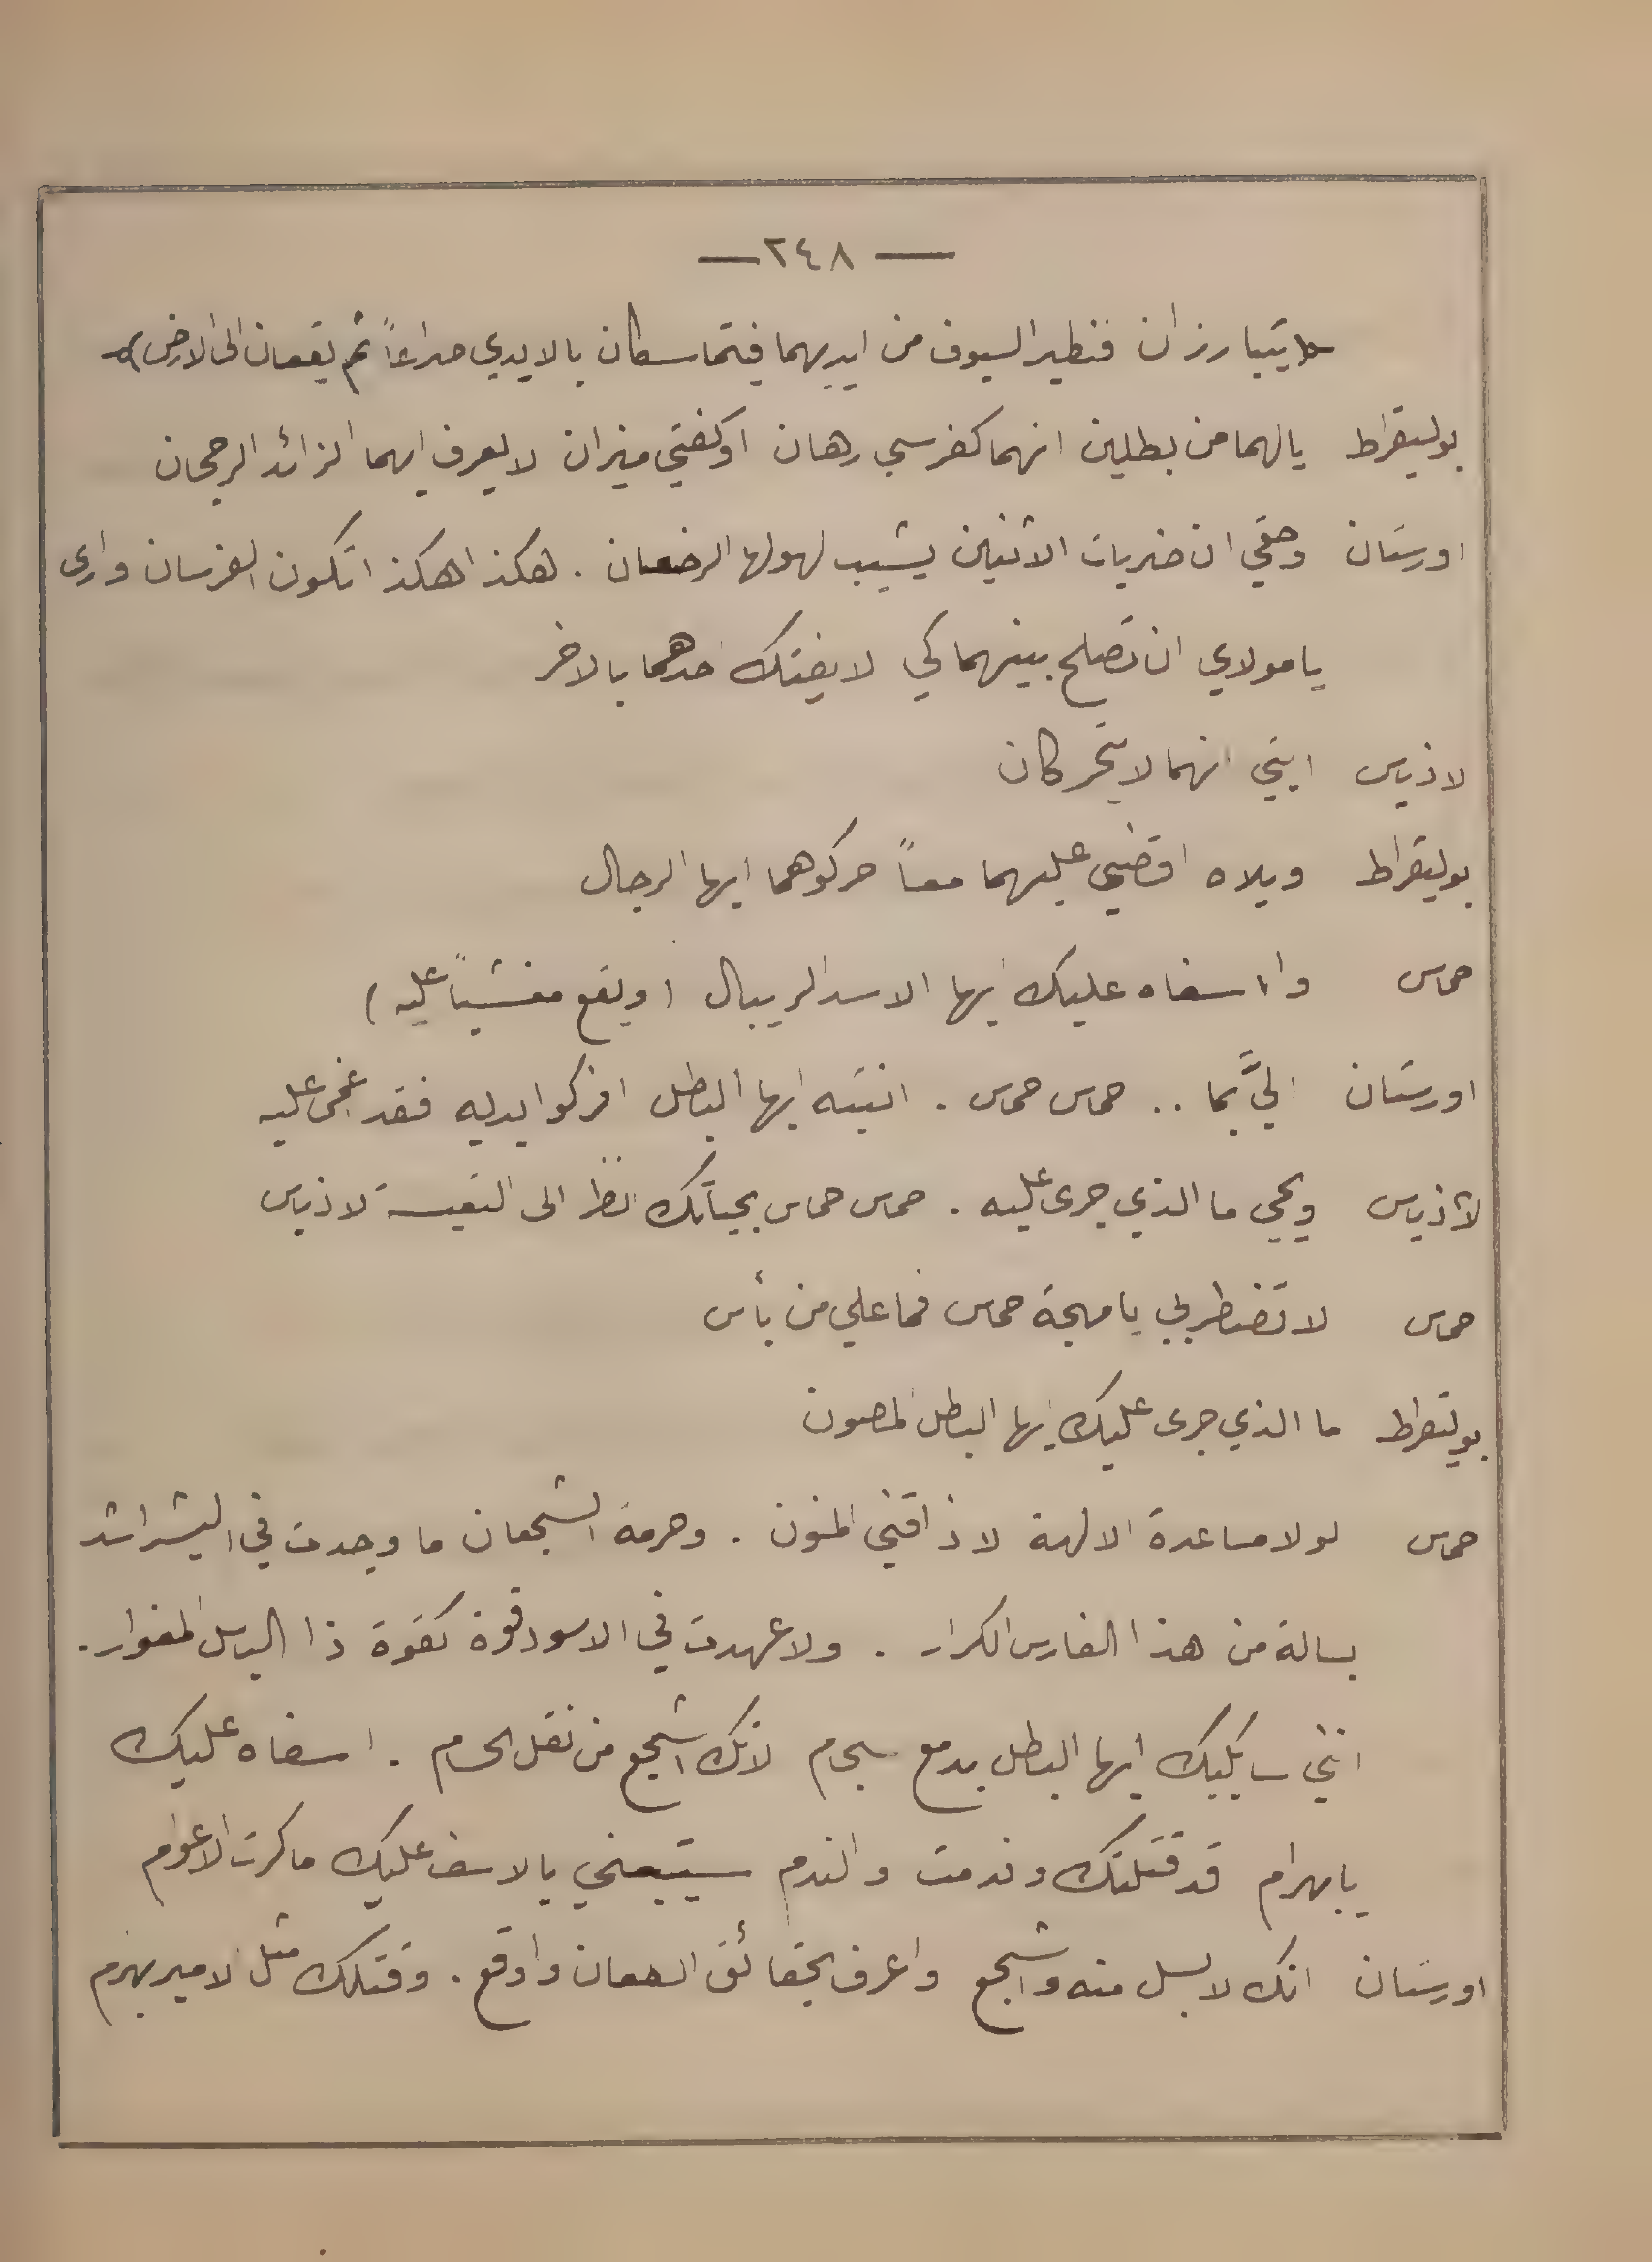 — ٢٤٨ —
(يتبارزان فتطير السيوف من ايديهما فيتماسكان بالايدي صراعاً ثم يقعان الى الارض)
بوليقراط يالهما من بطلين انهما كفرسي رهان او كفتي ميزان لا يعرف ايهما الزائد الرجحان
اورستان وحقي ان ضربات الاثنين يشيب لهولها الرضعان . هكذا هكذا تكون الفرسان وارى
يا مولاي ان تصلح بينهما كي لا يفتك احدهما بالاخر
لاذياس ابتي انهما لا يتحركان
بوليقراط ويلاه اقضي عليهما معاً حركوهما ايها الرجال
حماس وا اسفاه عليك ايها الاسد الريبال (ويقع مغشياً عليه)
اورستان اليَّ بما .. حماس حماس . انتبه ايها البطل افركوا يديه فقد غمي عليه
لاذياس ويحي ما الذي جرى عليه . حماس حماس بحياتك انظر الى التعيسة لاذياس
حماس لا تضطربي يا مهجة حماس فما علي من بأس
بوليقراط ما الذي جرى عليك ايها البطل المصون
حماس لولا مساعدة الالهة لاذاقني المنون . وحرمة الشجعان ما وجدت في البشر اشد
بسالة من هذا الفارس الكرار . ولا عهدت في الاسود قوة كقوة ذا الباسل المغوار .
انني سابكيك ايها البطل بدمع سجام لانك اشجع من نقل الحسام . اسفاه عليك
يا بهرام قد قتلتك وندمت والندم سيتبعني بالاسف عليك ما كرت الاعوام
اورستان انك لابسل منه واشجع واعرف بحقائق الطعان واوقع . وقتلك مثل الامير بهرام